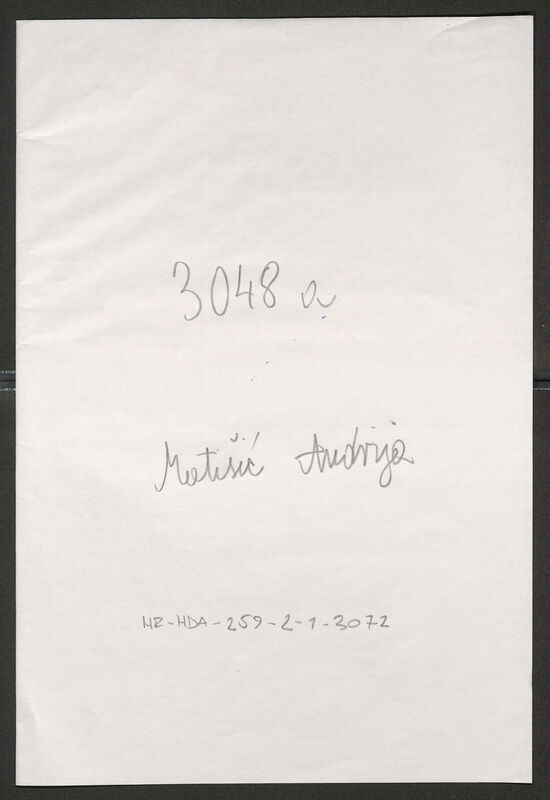 3048 a
Matišić Andrija
HR-HDA-259-2-1-3072